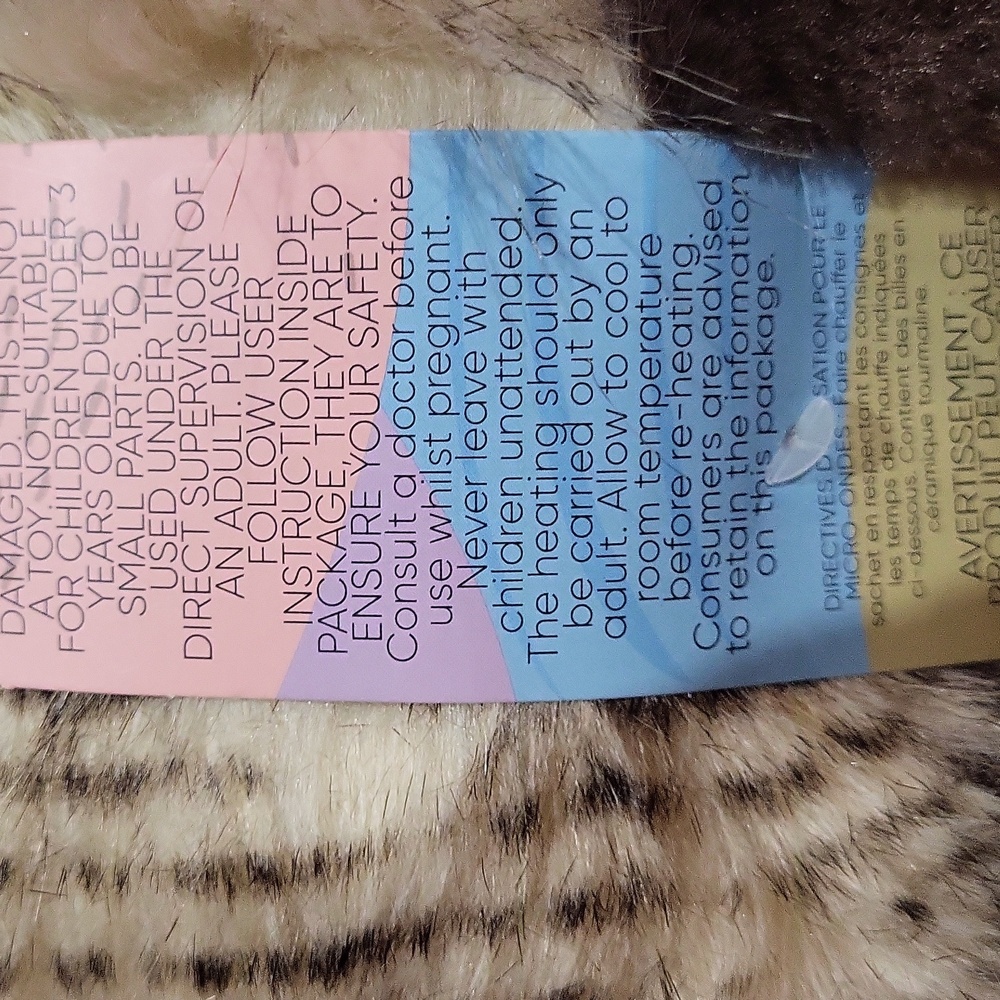 DAMAGED. THIS IS NOT
A TOY. NOT SUITABLE
FOR CHILDREN UNDER 3
YEARS OLD DUE TO
SMALL PARTS. TO BE
USED UNDER THE
DIRECT SUPERVISION OF
AN ADULT. PLEASE
FOLLOW USER
INSTRUCTION INSIDE
PACKAGE, THEY ARE TO
ENSURE YOUR SAFETY.
Consult a doctor before
use whilst pregnant.
Never leave with
children unattended.
The heating should only
be carried out by an
adult. Allow to cool to
room temperature
before re-heating.
Consumers are advised
to retain the information
on this package.
DIRECTIVES D SATION POUR LE
MICRO-ONDES: Faire chauffer le
sachet en respectant les consignes et
les temps de chauffe indiquées
ci-dessous. Contient des billes en
céramique tourmaline.
AVERTISSEMENT. CE
PRODUIT PEUT CAUSER